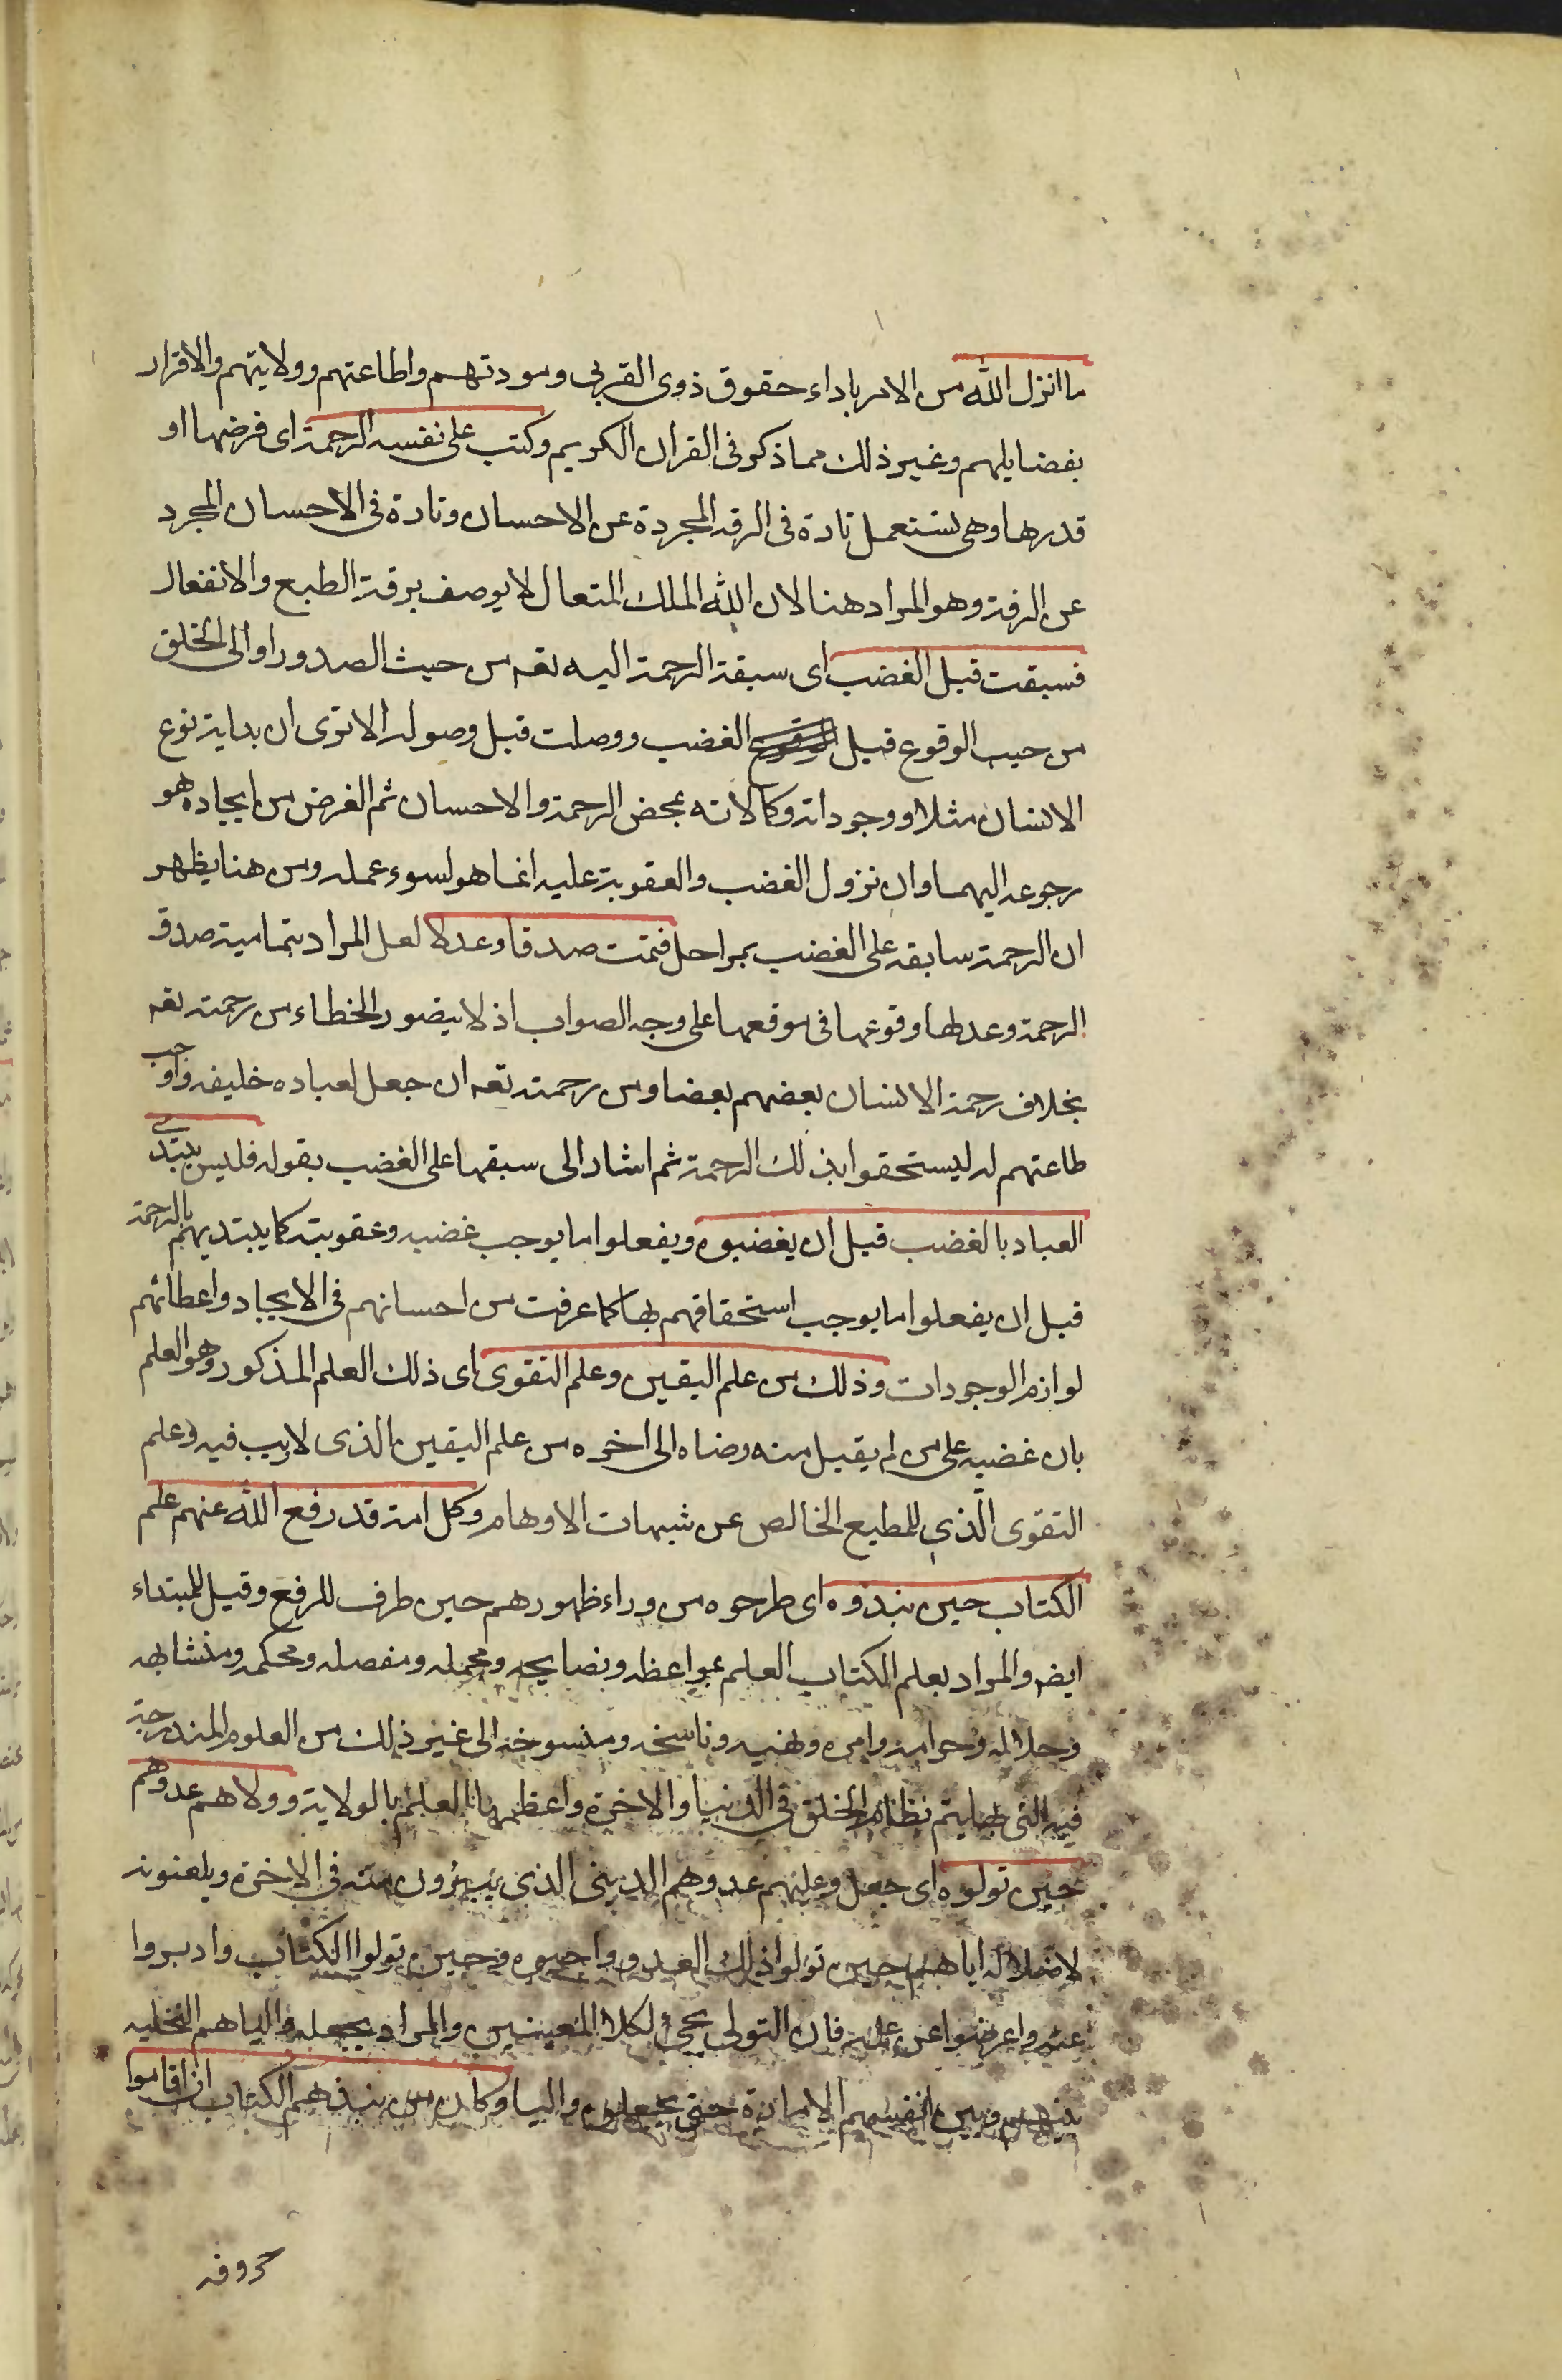 ما انزل الله من الامر باداء حقوق ذوى القربى ومودتهم واطاعتهم وولايتهم والاقرار
بفضايلهم وغير ذلك مما ذكر فى القران الكريم وكتب على نفسه الرحمة اى فرضها او
قدرها وهى تستعمل تارة فى الرقة المجردة عن الاحسان وتارة فى الاحسان المجرد
عن الرقة وهو المراد هنا لان الله الملك المتعال لا يوصف برقة الطبع والانفعال
فسبقت قبل الغضب اى سبقة الرحمة اليه تعه من حيث الصدور او الى الخلق
من حيث الوقوع قبل الغضب ووصلت قبل وصوله الا ترى ان بداية نوع
الانسان مثلا ووجوداته وكمالاته بمحض الرحمة والاحسان ثم الغرض من ايجاده هو
رجوعه اليهما وان نزول الغضب والعقوبة عليه انما هو لسوء عمله ومن هنا يظهر
ان الرحمة سابقه على الغضب بمراحل فتمت صدقا وعدلا لعل المراد بتمامية صدق
الرحمة وعدلها وقوعها فى موقعها على وجه الصواب اذ لا يتصور الخطاء من رحمته تعه
بخلاف رحمة الانسان بعضهم بعضا ومن رحمته تعه ان جعل لعباده خليفه واوجب
طاعتهم له ليستحقوا بذلك الرحمة ثم اشار الى سبقها على الغضب بقوله فليس يبتدى
العباد بالغضب قبل ان يغضبوه ويفعلوا ما يوجب غضبه وعقوبته كما يبتديهم بالرحمة
قبل ان يفعلوا ما يوجب استحقاقهم بها كما عرفت من احسانهم فى الايجاد واعطائهم
لوازم الوجودات وذلك من علم اليقين وعلم التقوى اى ذلك العلم المذكور وهو العلم
بان غضبه على من لم يقبل منه رضاه الى اخره من علم اليقين الذى لا ريب فيه وعلم
التقوى الذى للمطيع الخالص عن شبهات الاوهام وكل امة قد رفع الله عنهم علم
الكتاب حين نبذوه اى طرحوه من وراء ظهورهم حين ظرف للرفع وقيل للمبتداء
ايضه والمراد بعلم الكتاب العلم بمواعظه ونصايحه ومجمله ومفصله ومحكمه ومتشابهه
وحلاله وحرامه وامره ونهيه وناسخه ومنسوخه الى غير ذلك من العلوم المندرجة
فيه التى بها يتم نظام الخلق فى الدنيا والاخرة واعظمها العلم بالولاية وولاهم عدوهم
حين تولوه اى جعل وليهم عدوهم الدينى الذى يتبرؤن منه فى الاخرة ويلعنونه
لاضلاله اياهم حين تولوا ذلك العدو واحبوه وحين تولوا الكتاب وادبروا
عنه واعرضوا عن علمه فان التولى يجئ لكلا المعنيين والمراد بجعله واليا هم التخليه
بينهم وبين انفسهم الامارة حتى يجعلوه واليا وكان من نبذهم الكتاب ان اقاموا
حروفه